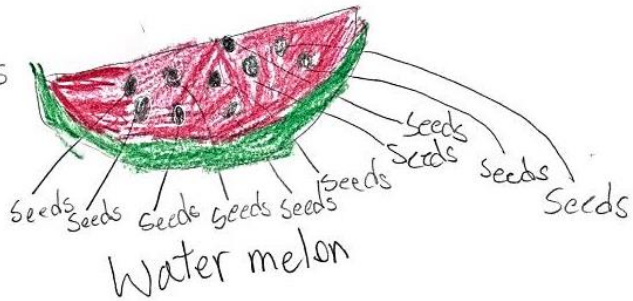 s
seeds
Seeds
Seeds
Seeds
Seeds
Seeds
Seeds
Seeds
Seeds
Seeds
Water melon